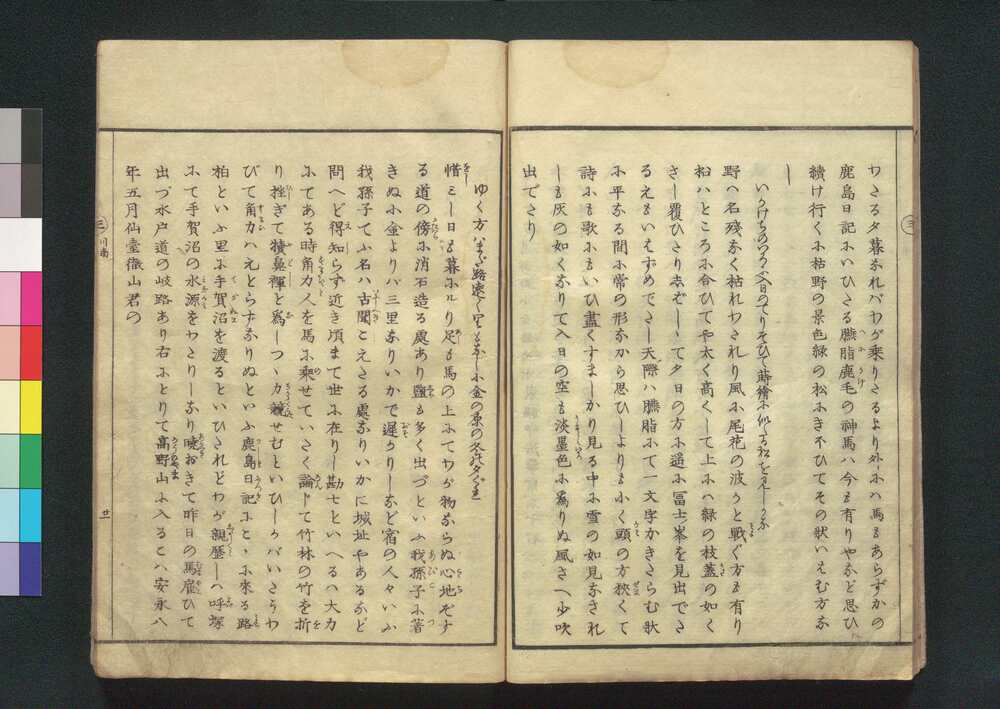 わたる夕暮なれバわが乗りたるより外にハ馬もあらずかの
鹿島日記にいひたる臙脂鹿毛の神馬ハ今も有りやなど思ひ
續け行くに枯野の景色緑の松にきそひてその状いえむ方な
し
野へ名残なく枯れわたれり風に尾花の波うと戰ぐ方も有り
松ハところに合ひてや太く高くして上にハ緑の枝蓋の如く
さし覆ひたり志ぞしして夕日の方に遥に冨士峯を見出でた
るえもいえずめでたし天際ハ臙脂にて一文字かきたらむ歟
に平なる間に常の形なから思ひしよりも小く頭の方狹くて
詩にも歌にもいひ盡くすましかり見る中に雪の如見なされ
しも灰の如くなりて入日の空も淡墨色に爲りぬ風さへ少吹
出でたり
ゆく方ハまだ路遠く里もなし小金の原の冬の夕ぐれ
惜ミし日も暮にたり足も馬の上にてわが物ならぬ心地ぞす
る道の傍に消石造る處あり鹽も多く出づといふ我孫子に著
きぬ小金よりハ三里なりいかで遲かりしなど宿の人々いふ
我孫子てふ名ハ古聞こえたる處なりいかに城址やあるなど
問へど得知らず近き頃まて世に在りし勘七といへるハ大力
にてある時角力人を馬に乘せていたく論して竹林の竹を折
り挫ぎて犢鼻褌と爲しつゝ力競せむといひしかバいたうわ
びて角力ハえとらずなりぬといふ鹿島日記にこゝに來る路
柏といふ里に手賀沼を渡るといひたれどわが親歷しハ呼塚
にて手賀沼の水源をわたりしなり曉おきて昨日の馬雇ひて
出づ水戸道の岐路あり右にとりて高野山に入るこハ安永八
年五月仙臺徹山君の
三
三
川南
廿一